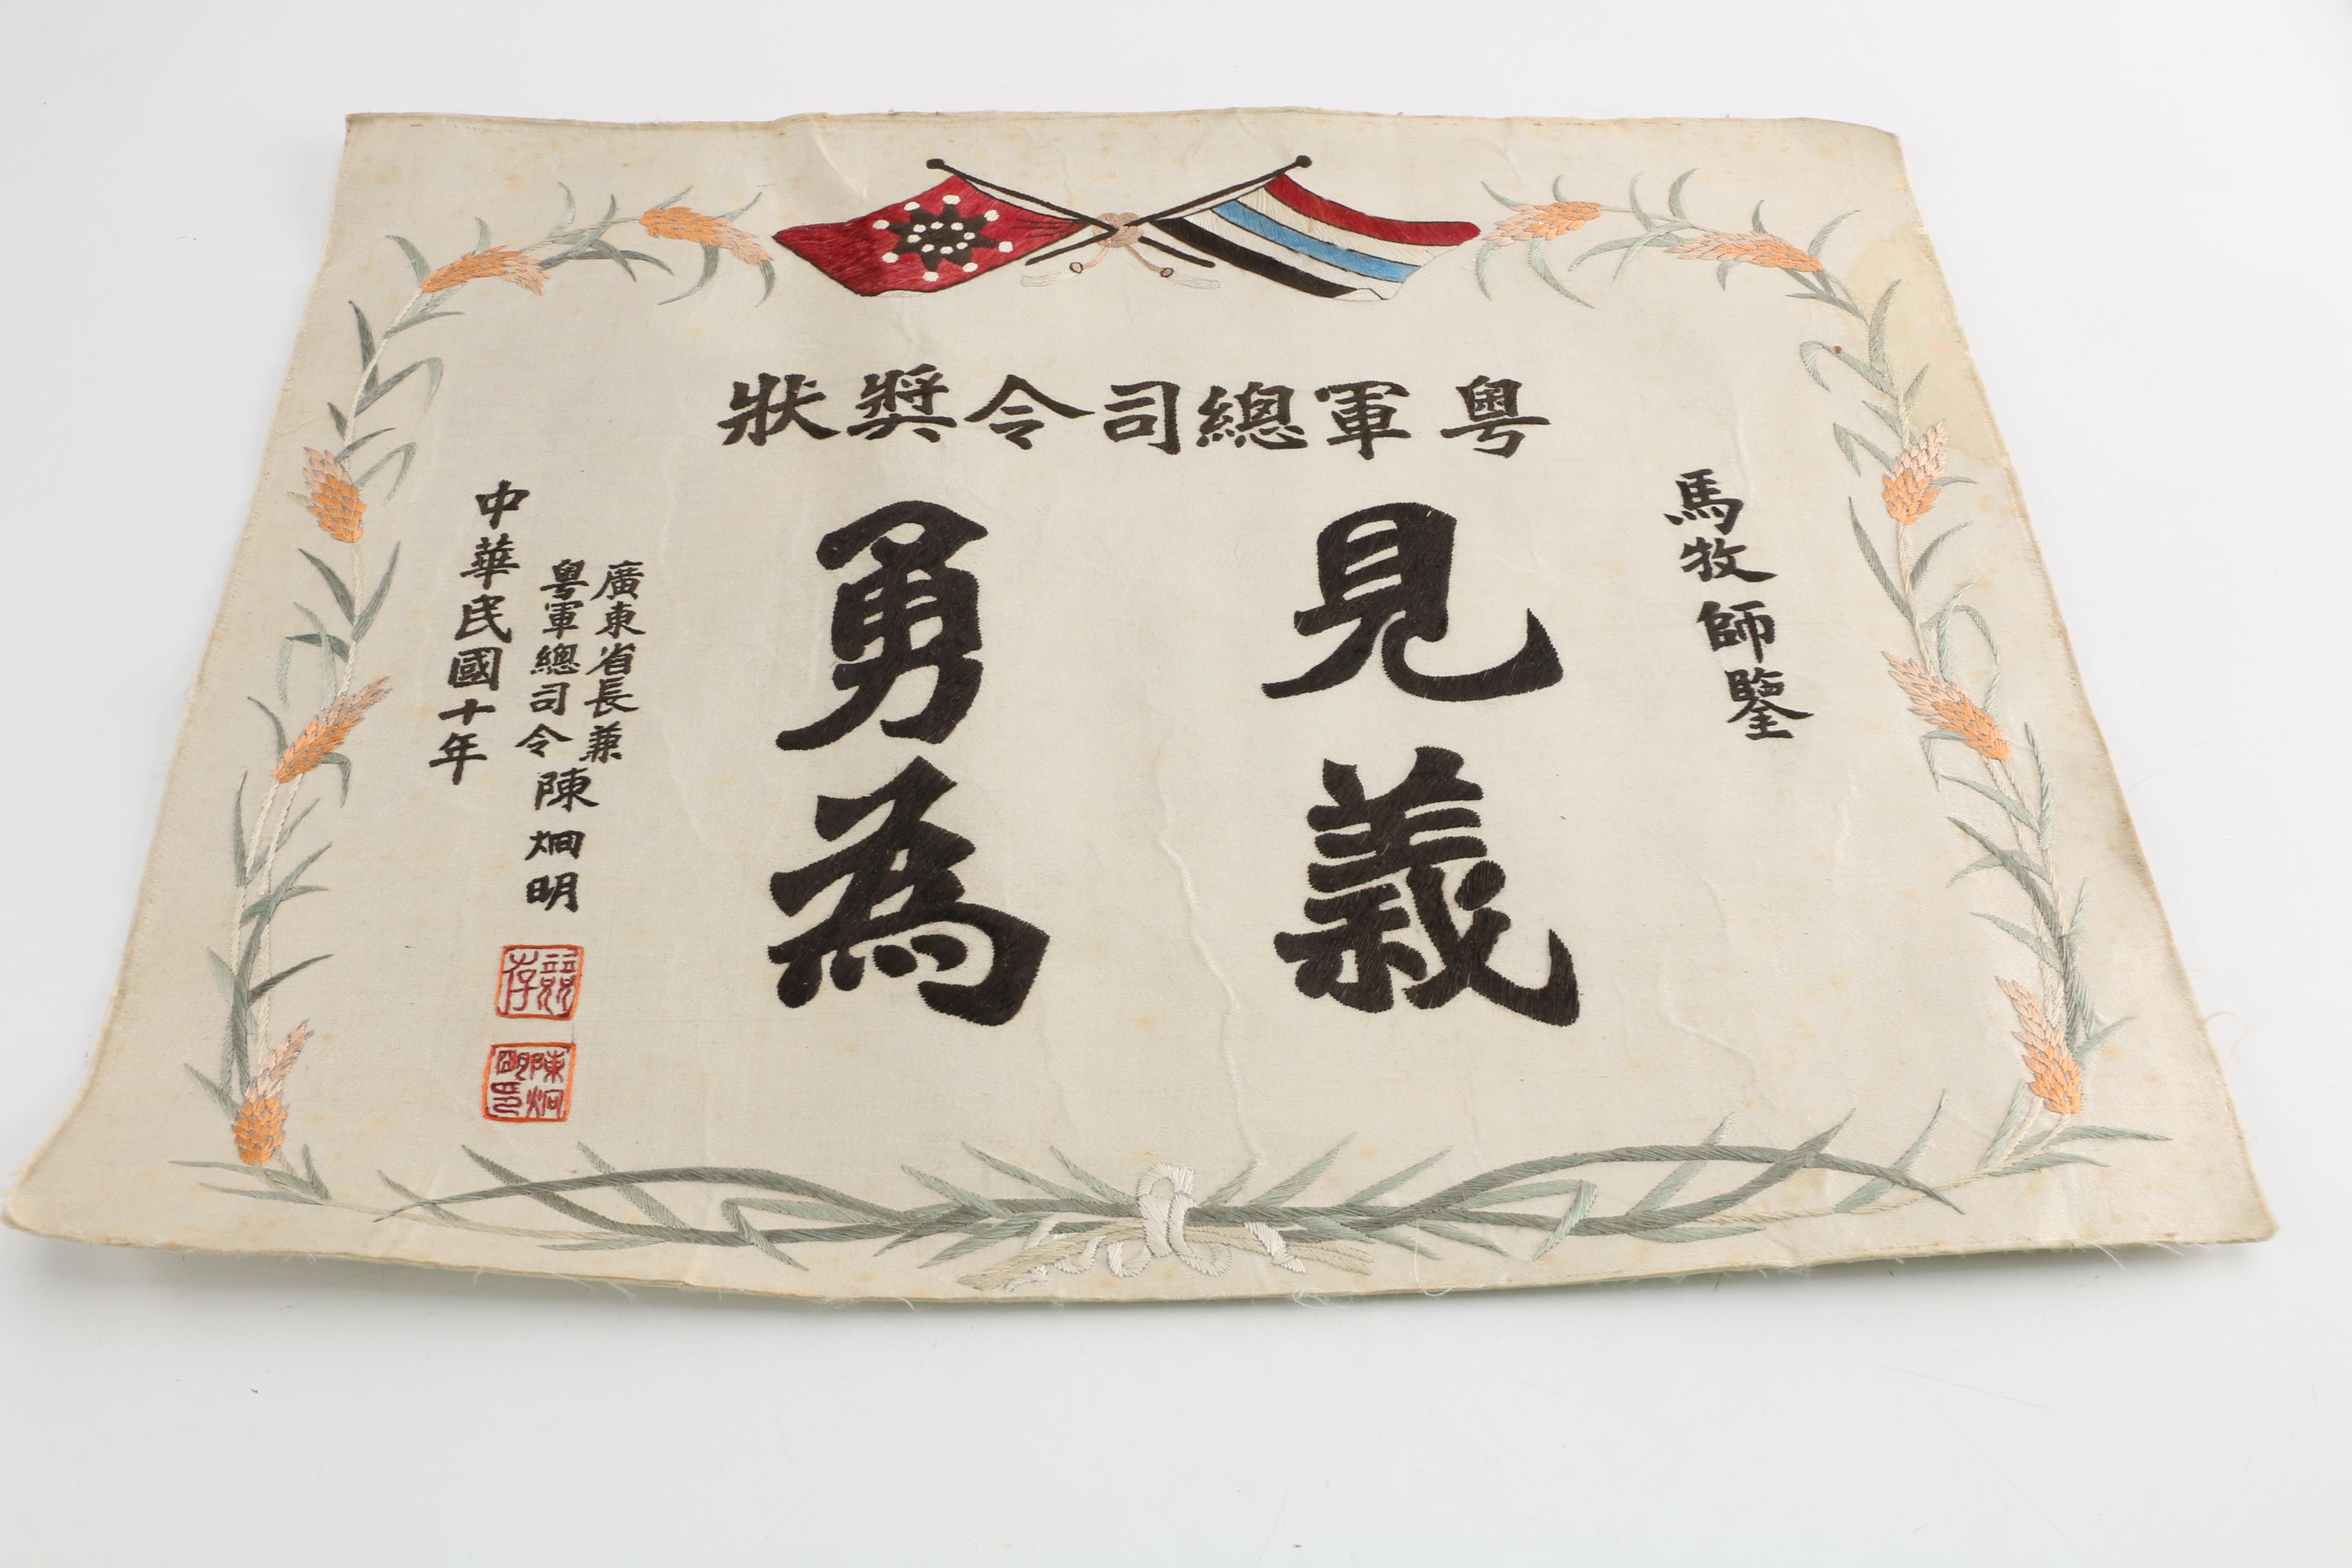 粵軍總司令獎狀
馬牧師鑒
見義
勇為
廣東省長兼
粵軍總司令陳炯明
中華民國十年
競存
陳炯明印